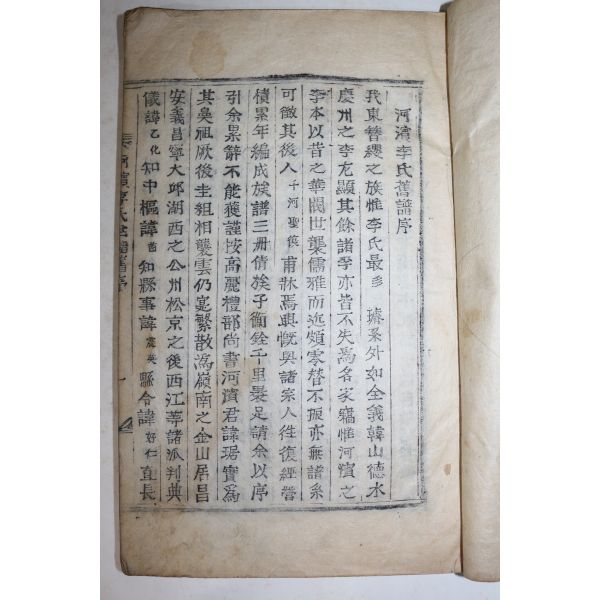 河濱李氏舊譜序
我東簪纓之族惟李氏最多 璿系外如全義韓山德水
慶州之李尤顯其餘諸李亦皆不失爲名家竊惟河濱之
李本以昔之華閥世襲儒雅而迄頗家替不振亦無譜系
可徵其後人 千河聖 甫 焉興慨與諸宗人往復經營
積累年編成族譜三册倩族子衡銓千里 足請余以序
引余累辭不能獲謹按高麗禮部尚書河濱君諱琚實爲
其鼻祖厥後圭組相襲雲仍寔繁散 嶺南之金山居昌
安義昌寧大邱湖西之公州松京之後西江等諸派判典
儀諱乙化知中樞諱 知縣事諱震英縣令諱好仁直長
河濱李氏 譜舊序